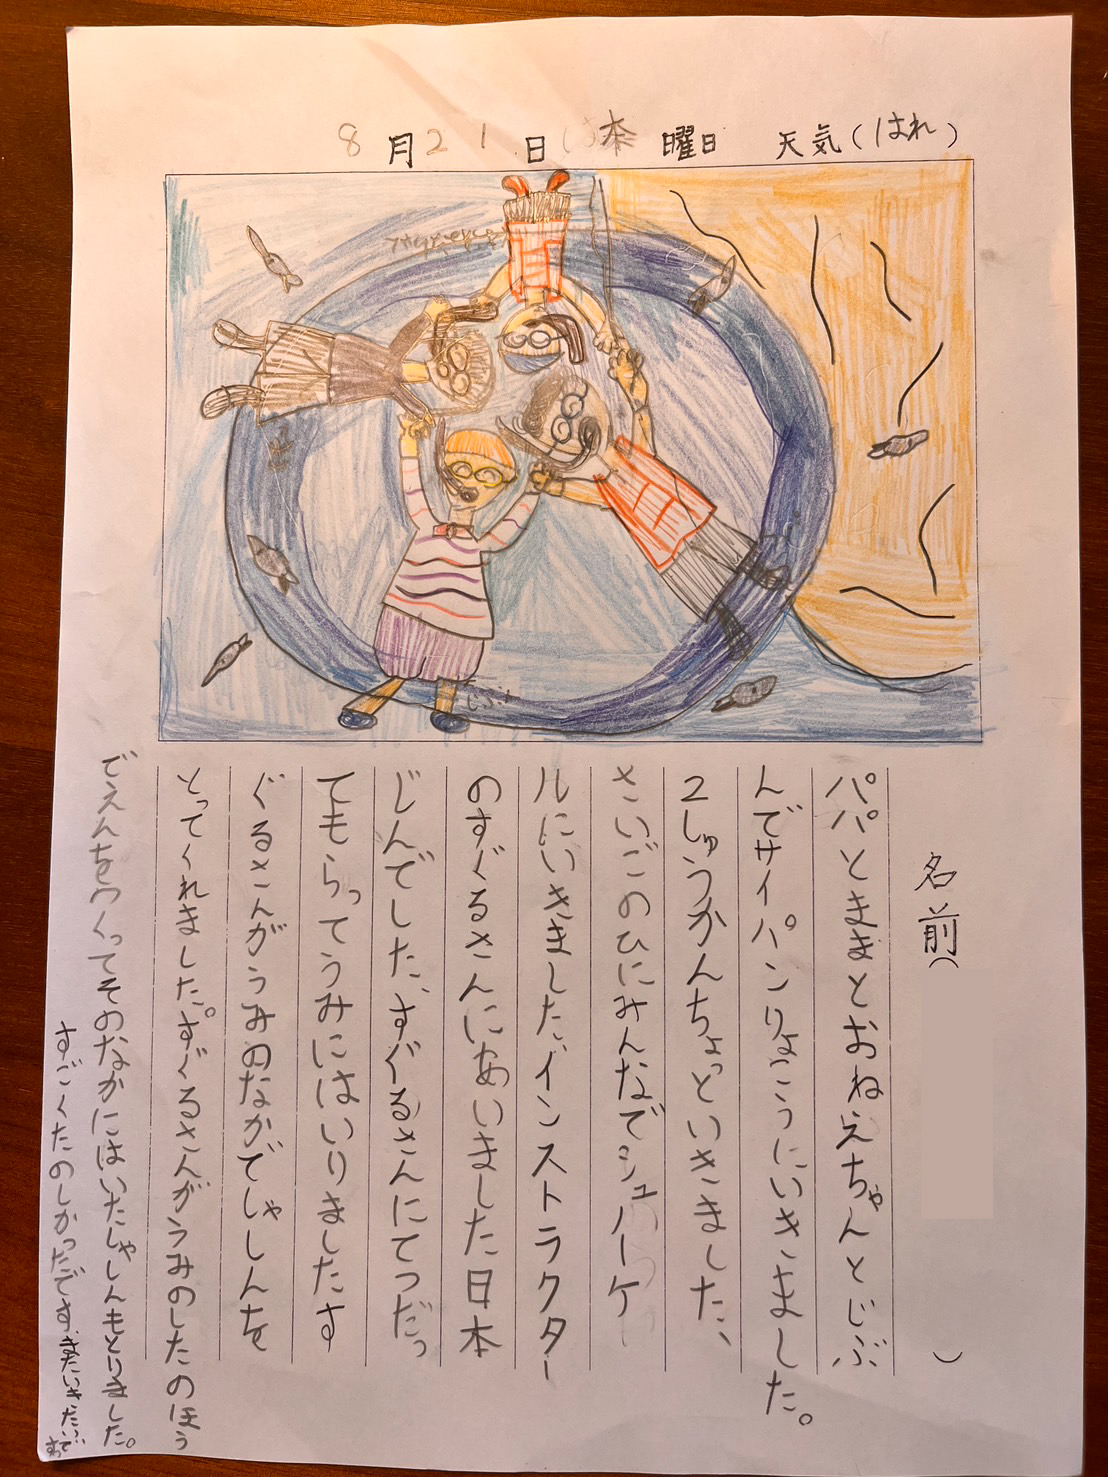 8月21日 木曜日 天気(はれ)
名前( )
パパとままとおねえちゃんとじぶ
んでサイパンりょこうにいきました。
2しゅうかんちょっといきました、
さいごのひにみんなでシュノーケ
ルにいきました、インストラクター
のすぐるさんにあいました日本
じんでした、すぐるさんにてつだっ
てもらってうみにはいりましたす
ぐるさんがうみのなかでしゃしんを
とってくれました。すぐるさんがうみのしたのほう
でえんをつくってそのなかにはいたしゃしんもとりました。
すごくたのしかったです。またいきたい